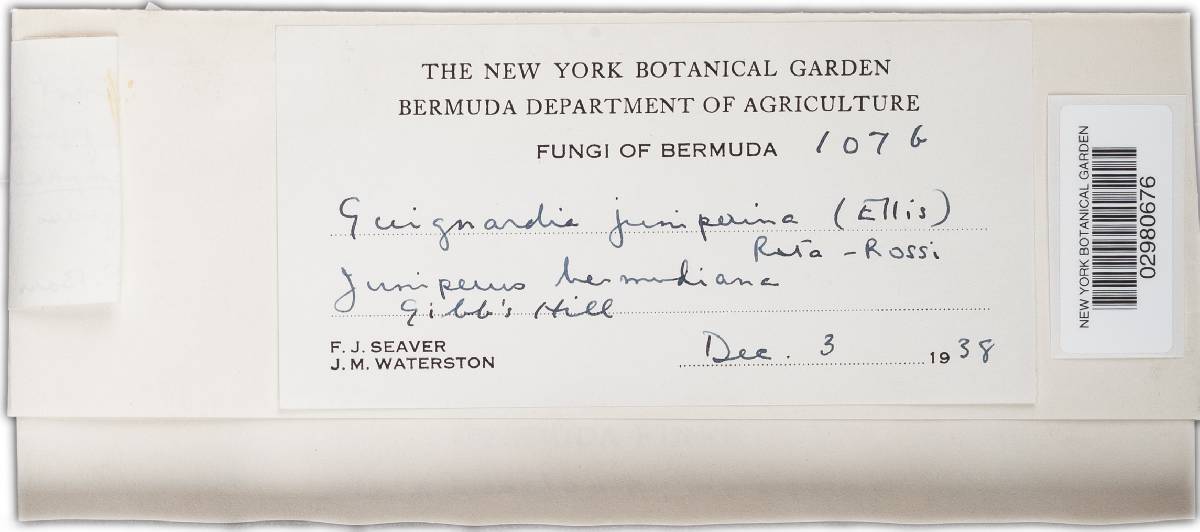 THE NEW YORK BOTANICAL GARDEN
BERMUDA DEPARTMENT OF AGRICULTURE
FUNGI OF BERMUDA 1076
Guignardia juniperina (Ellis)
Reta-Rossi
Juniperus bermudiana
Gibb's Hill
F. J. SEAVER
J. M. WATERSTON
Dec. 3 1938
NEW YORK BOTANICAL GARDEN
02980676